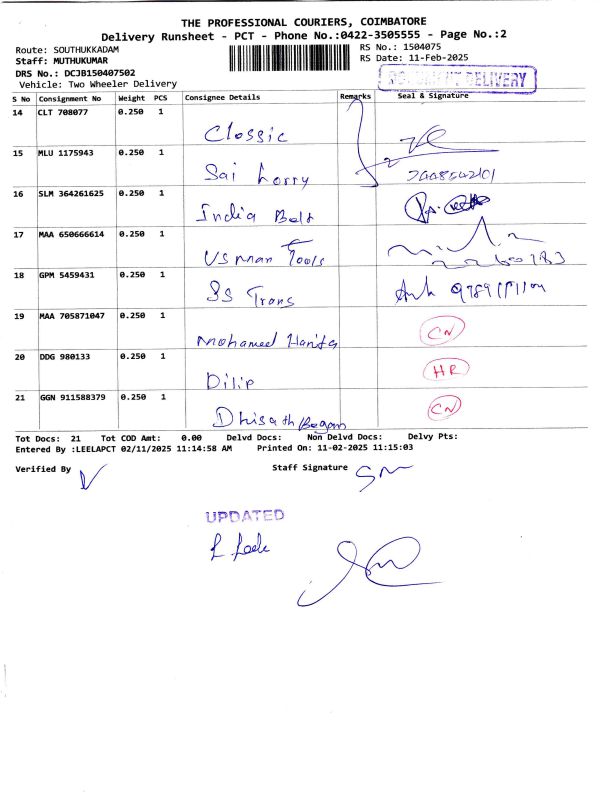 THE PROFESSIONAL COURIERS, COIMBATORE
Delivery Runsheet - PCT - Phone No.:0422-3505555 - Page No.:2
Route: SOUTHUKKADAM
RS No.: 1504075
Staff: MUTHUKUMAR
RS Date: 11-Feb-2025
DRS No.: DCJB150407502
Vehicle: Two Wheeler Delivery
DOCUMENT DELIVERY
S No Consignment No Weight PCS Consignee Details Remarks Seal & Signature
14 CLT 708077 0.250 1
Classic
15 MLU 1175943 0.250 1
Sai Lorry
16 SLM 364261625 0.250 1
India Belt
17 MAA 650666614 0.250 1
Usman Tools
18 GPM 5459431 0.250 1
SS Trans
19 MAA 705871047 0.250 1
Mohameed Hanifa CN
20 DDG 980133 0.250 1
Dilip HR
21 GGN 911588379 0.250 1
Dhisath Begam CN
Tot Docs: 21 Tot COD Amt: 0.00 Delvd Docs: Non Delvd Docs: Delvy Pts:
Entered By :LEELAPCT 02/11/2025 11:14:58 AM Printed On: 11-02-2025 11:15:03
Verified By Staff Signature
UPDATED